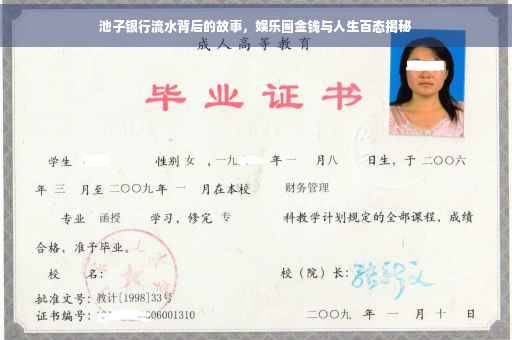 池子银行流水背后的故事，娱乐圈金钱与人生百态揭秘
成人高等教育
毕业证书
学生 性别 女 ，一九 年 一 月 八 日生，于 二〇〇六
年 三 月至 二〇〇九 年 一 月在本校 财务管理
专业 函授 学习，修完 专 科教学计划规定的全部课程，成绩
合格，准予毕业。
校 名： 校（院）长：
批准文号：教计[1998]33号
证书编号： 06001310 二〇〇九 年 一 月 十 日